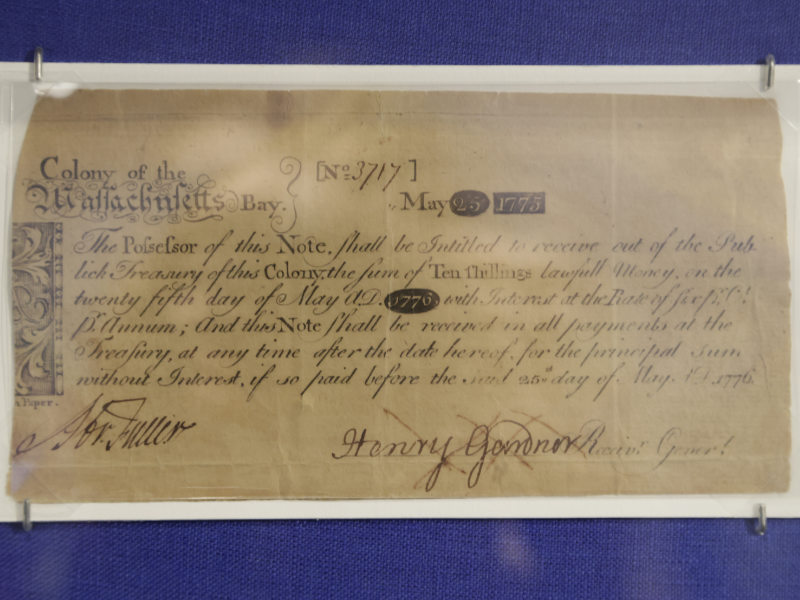 Colony of the
Massachusetts Bay. [No. 3717]
May 25 1775
The Possessor of this Note, shall be Intitled to receive out of the Pub-
lick Treasury of this Colony, the sum of Ten shillings lawfull Money, on the
twenty fifth day of May A.D. 1776, with Interest at the Rate of six pr. Ct.
pr. Annum; And this Note shall be received in all payments at the
Treasury, at any time after the date hereof, for the principal Sum
without Interest, if so paid before the said 25th day of May A.D. 1776.
Paper.
Abr. Fuller
Henry Gardner Receivr. Generl.